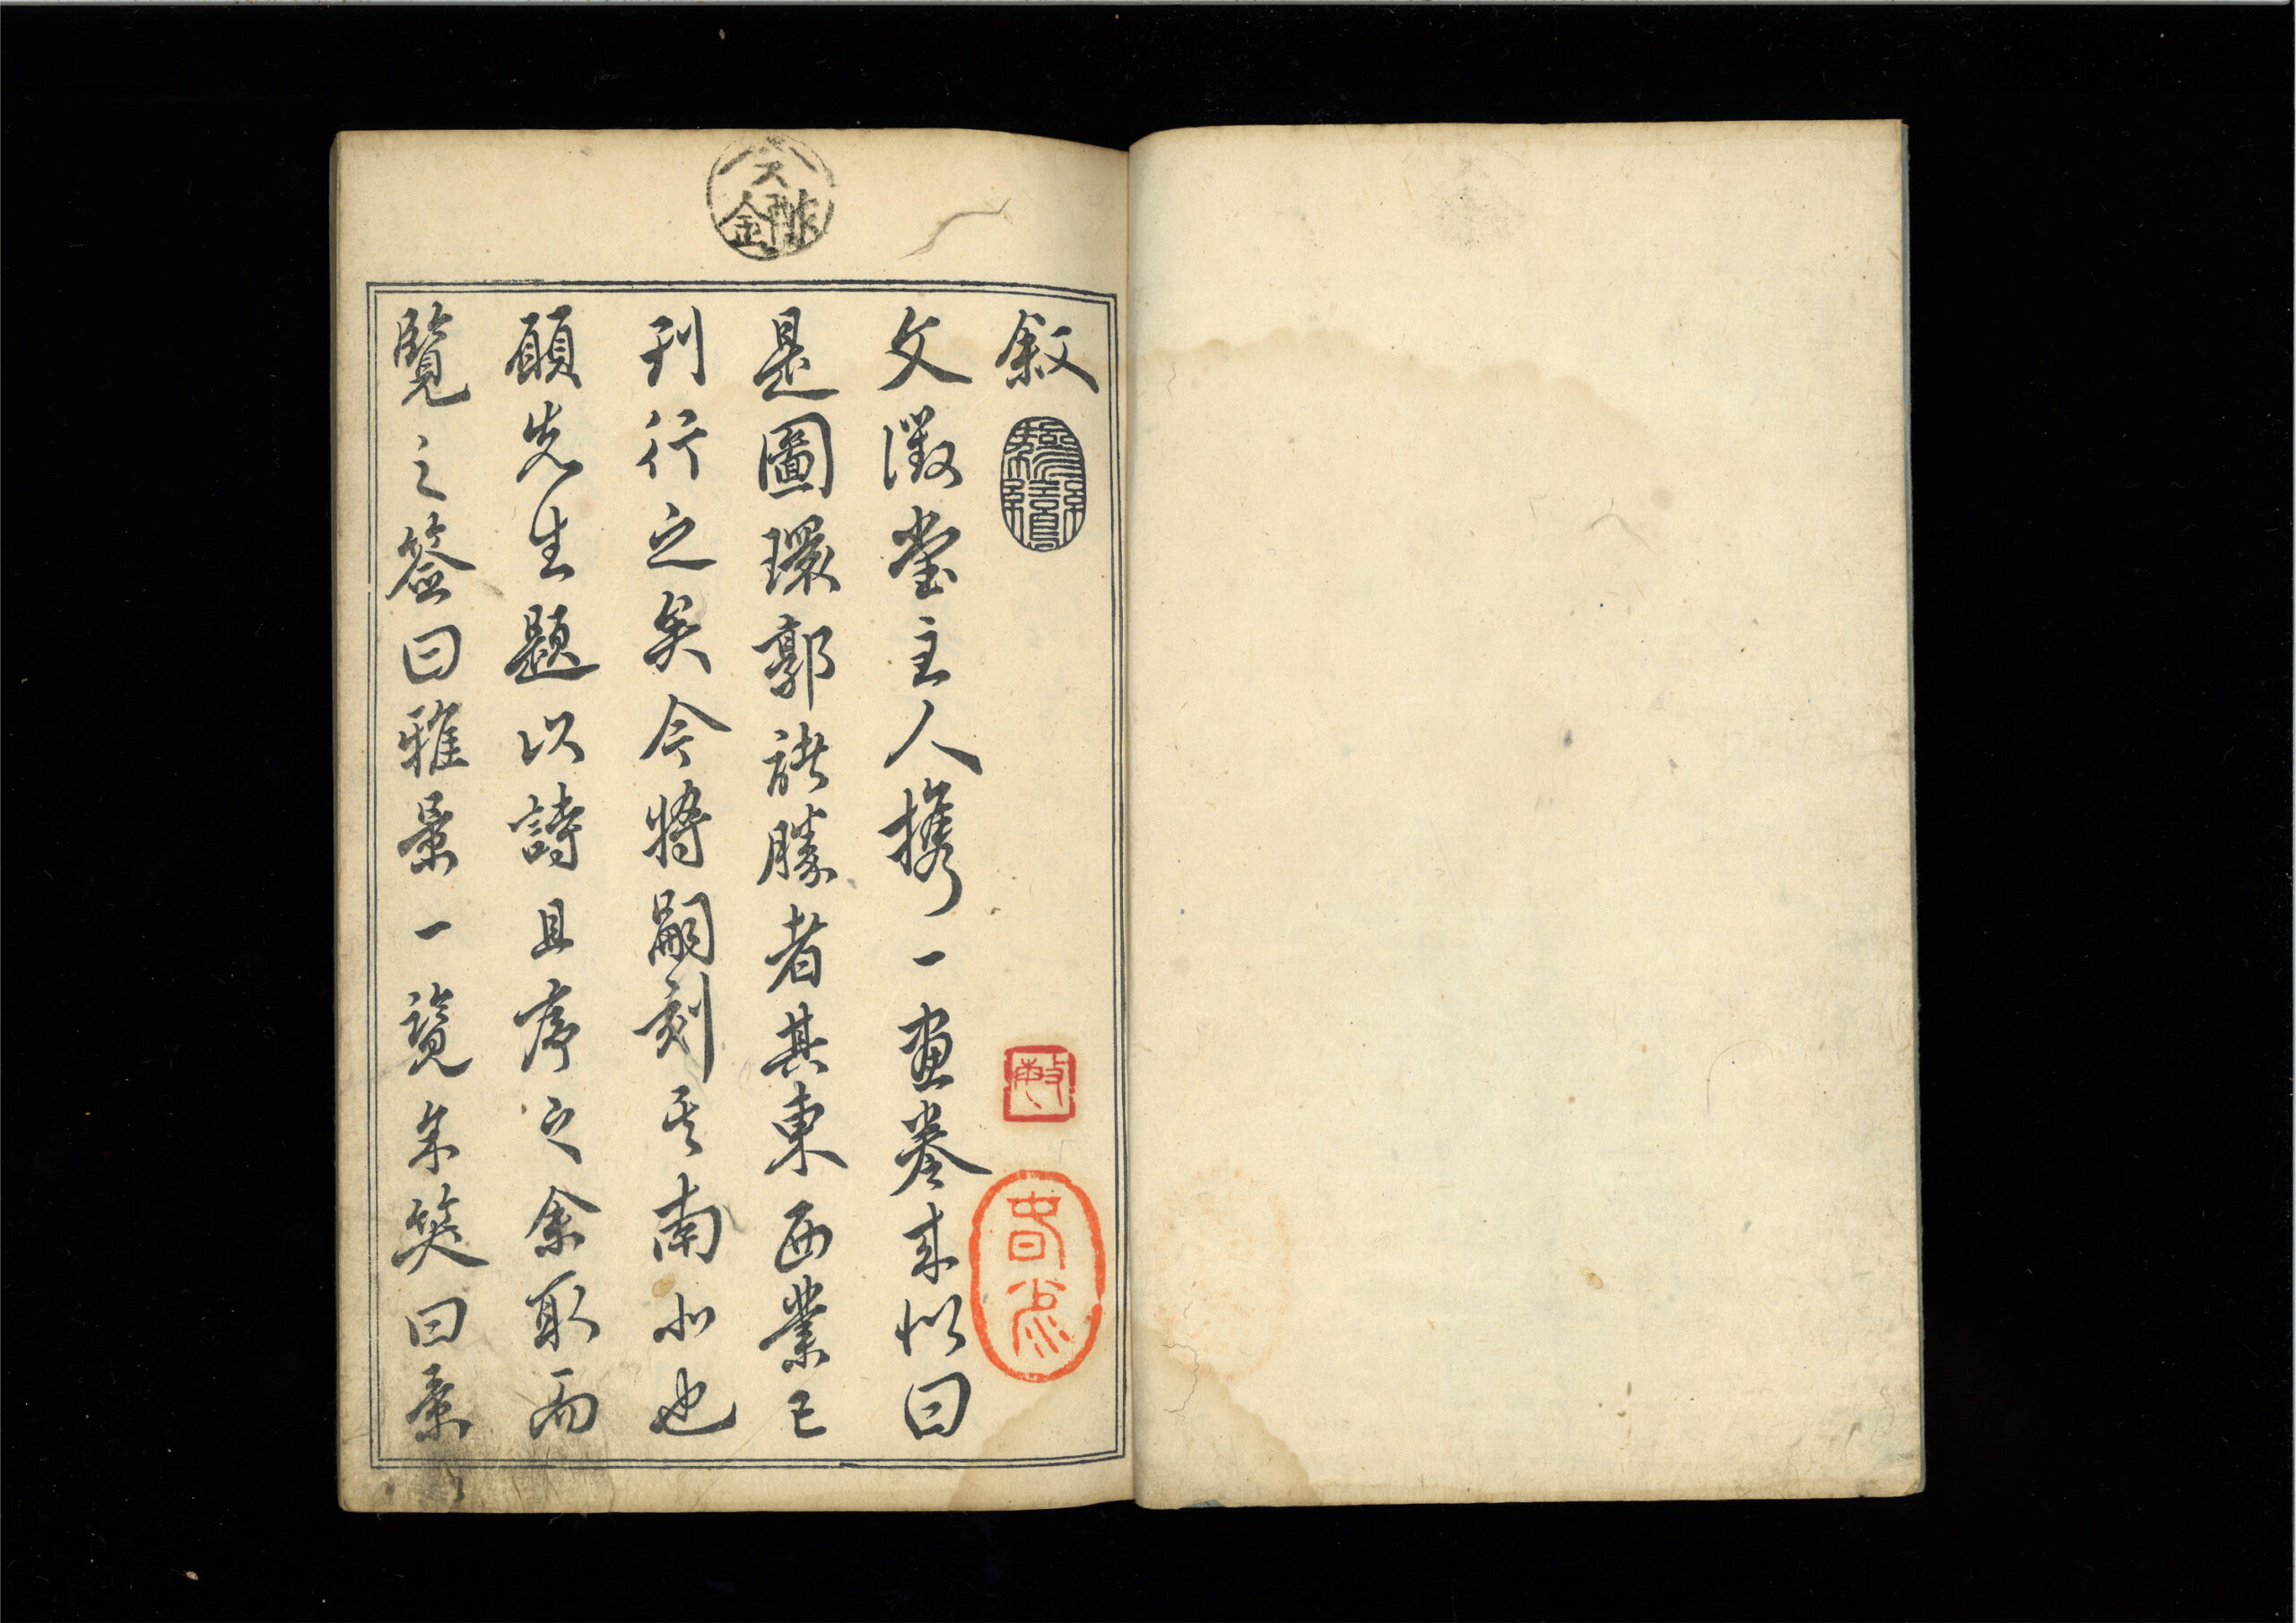 叙
文徴堂主人携一畫巻来似曰
是圖環郭諸勝者其東西業已
刊行之矣今將嗣刻其南北也
願先生題以詩且序之余取而
覧之簽曰雅景一覧余笑曰景